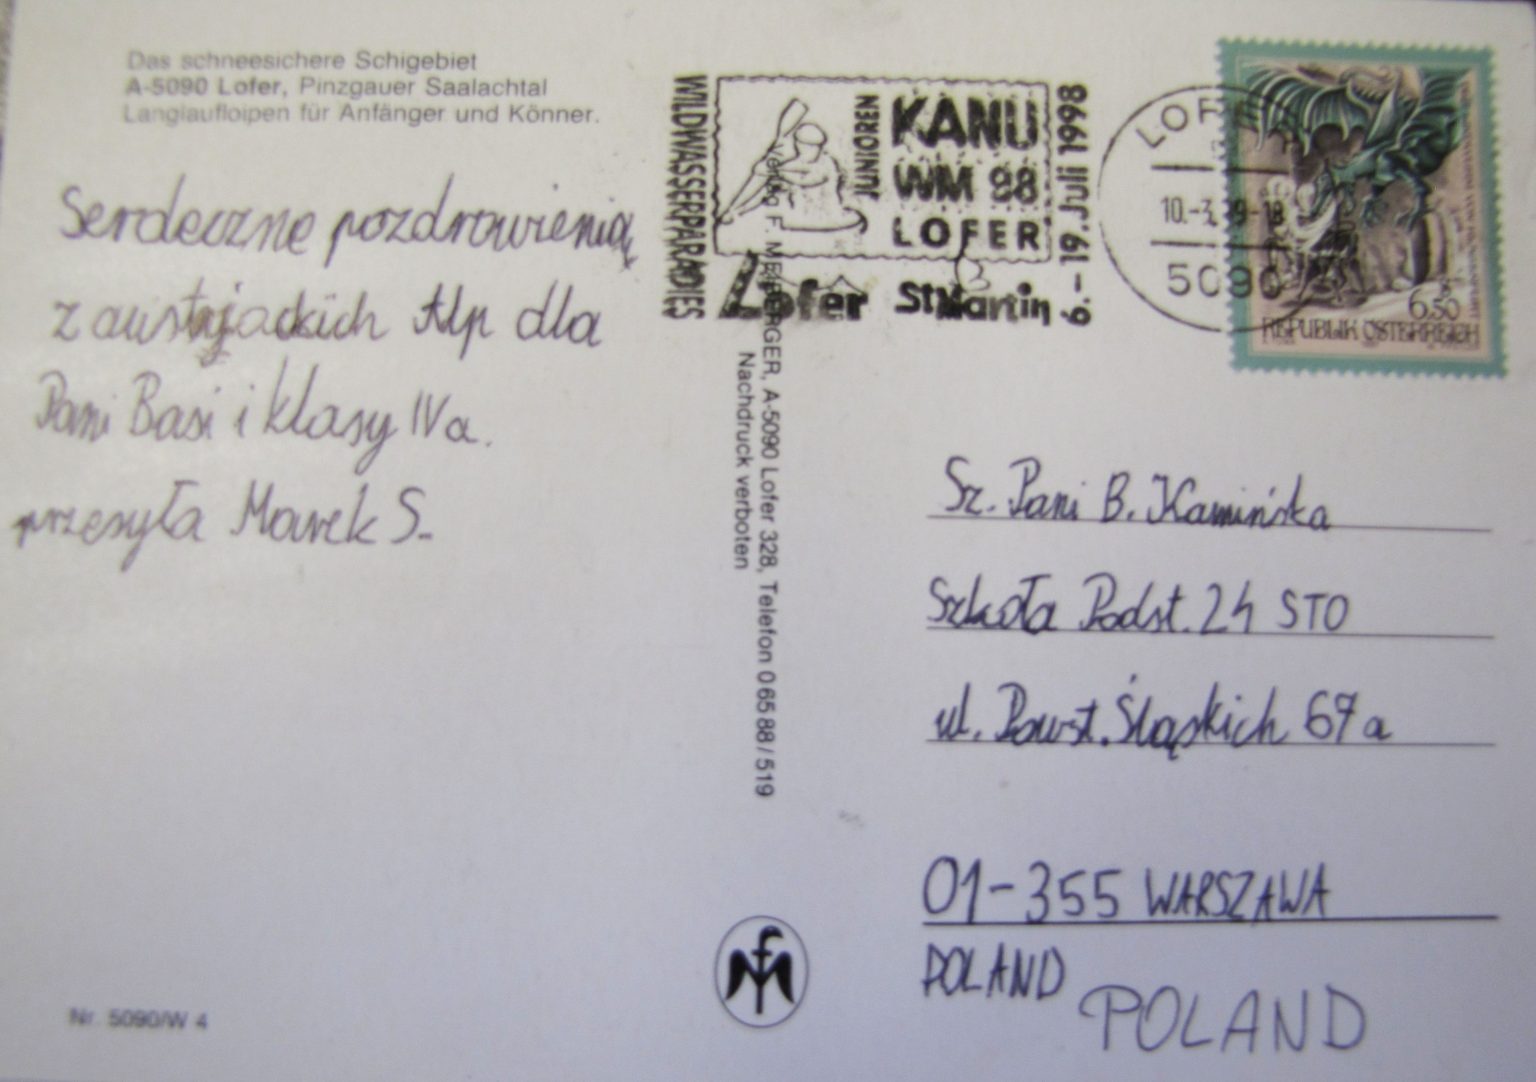 Das schneesichere Schigebiet
A-5090 Lofer, Pinzgauer Saalachtal
Langlaufloipen für Anfänger und Könner.
Serdeczne pozdrowienia
z austrjackich Alp dla
Pani Basi i klasy IVa.
przesyła Marek S.
Nr. 5090/W 4
WILDWASSERPARADIES
JUNIOREN
KANU
WM 98
LOFER
Lofer St Martin
6.-19. Juli 1998
Verlag F. MEIBERGER, A-5090 Lofer 328, Telefon 0 65 88 / 519
Nachdruck verboten
LOFER
10.-3. 99-18
5090
6.50
REPUBLIK ÖSTERREICH
Sz. Pani B. Kamińska
Szkoła Podst. 24 STO
ul. Powst. Śląskich 67a
01-355 WARSZAWA
POLAND
POLAND